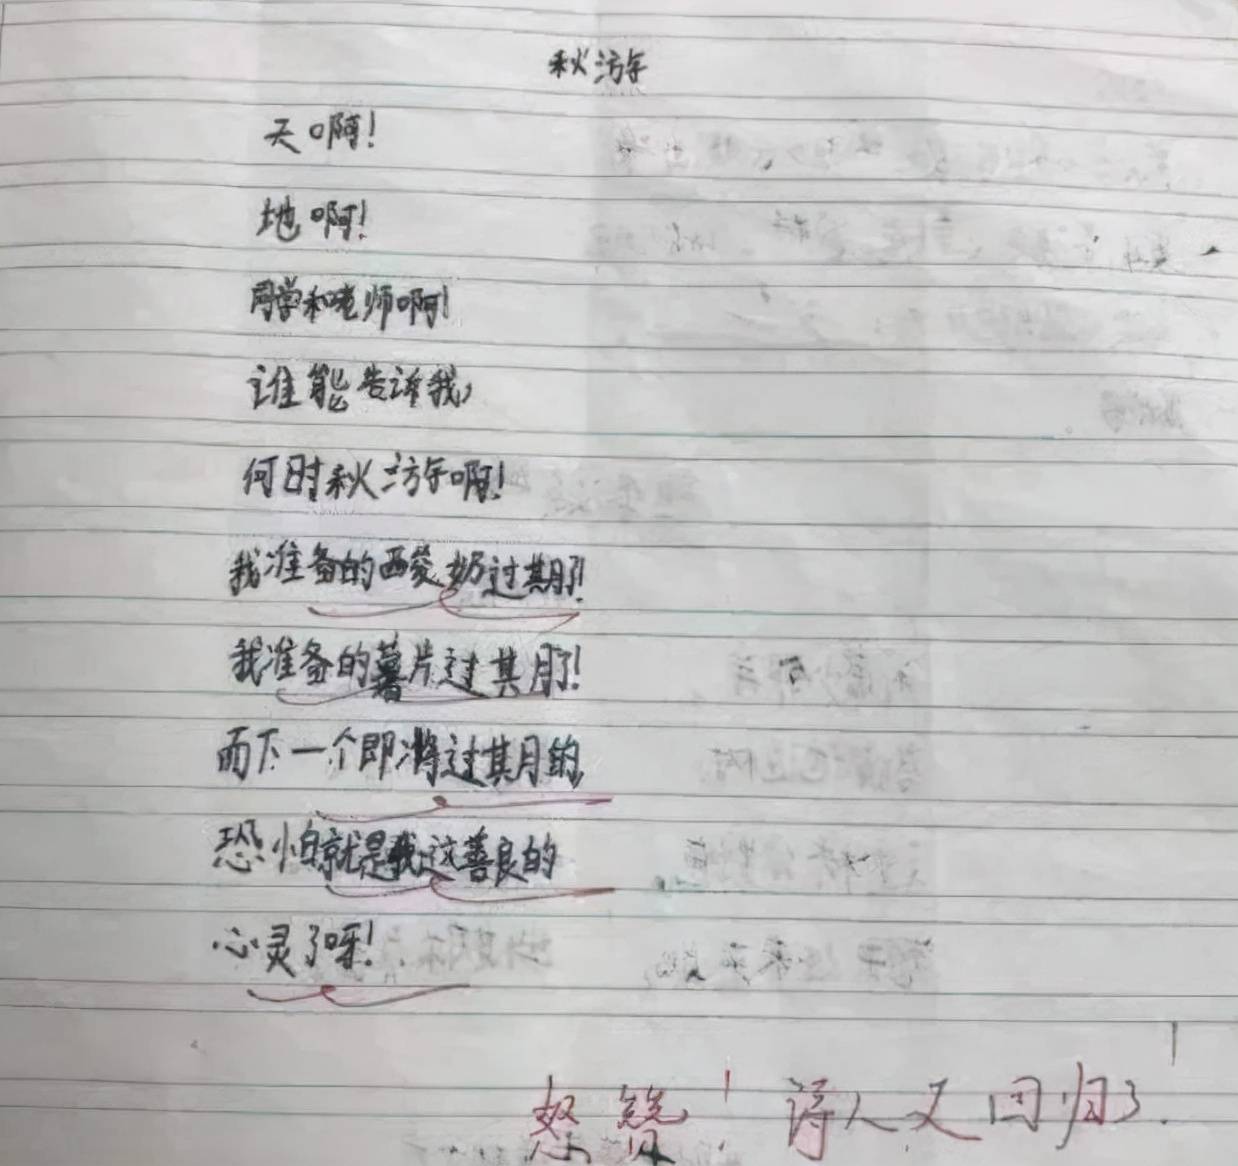 秋游
天啊!
地啊!
同学和老师啊!
谁能告诉我,
何时秋游啊!
我准备的酸奶过期了!
我准备的薯片过期了!
而下一个即将过期的,
恐怕就是我这善良的
心灵了呀!
怒赞! 诗人又回归了!